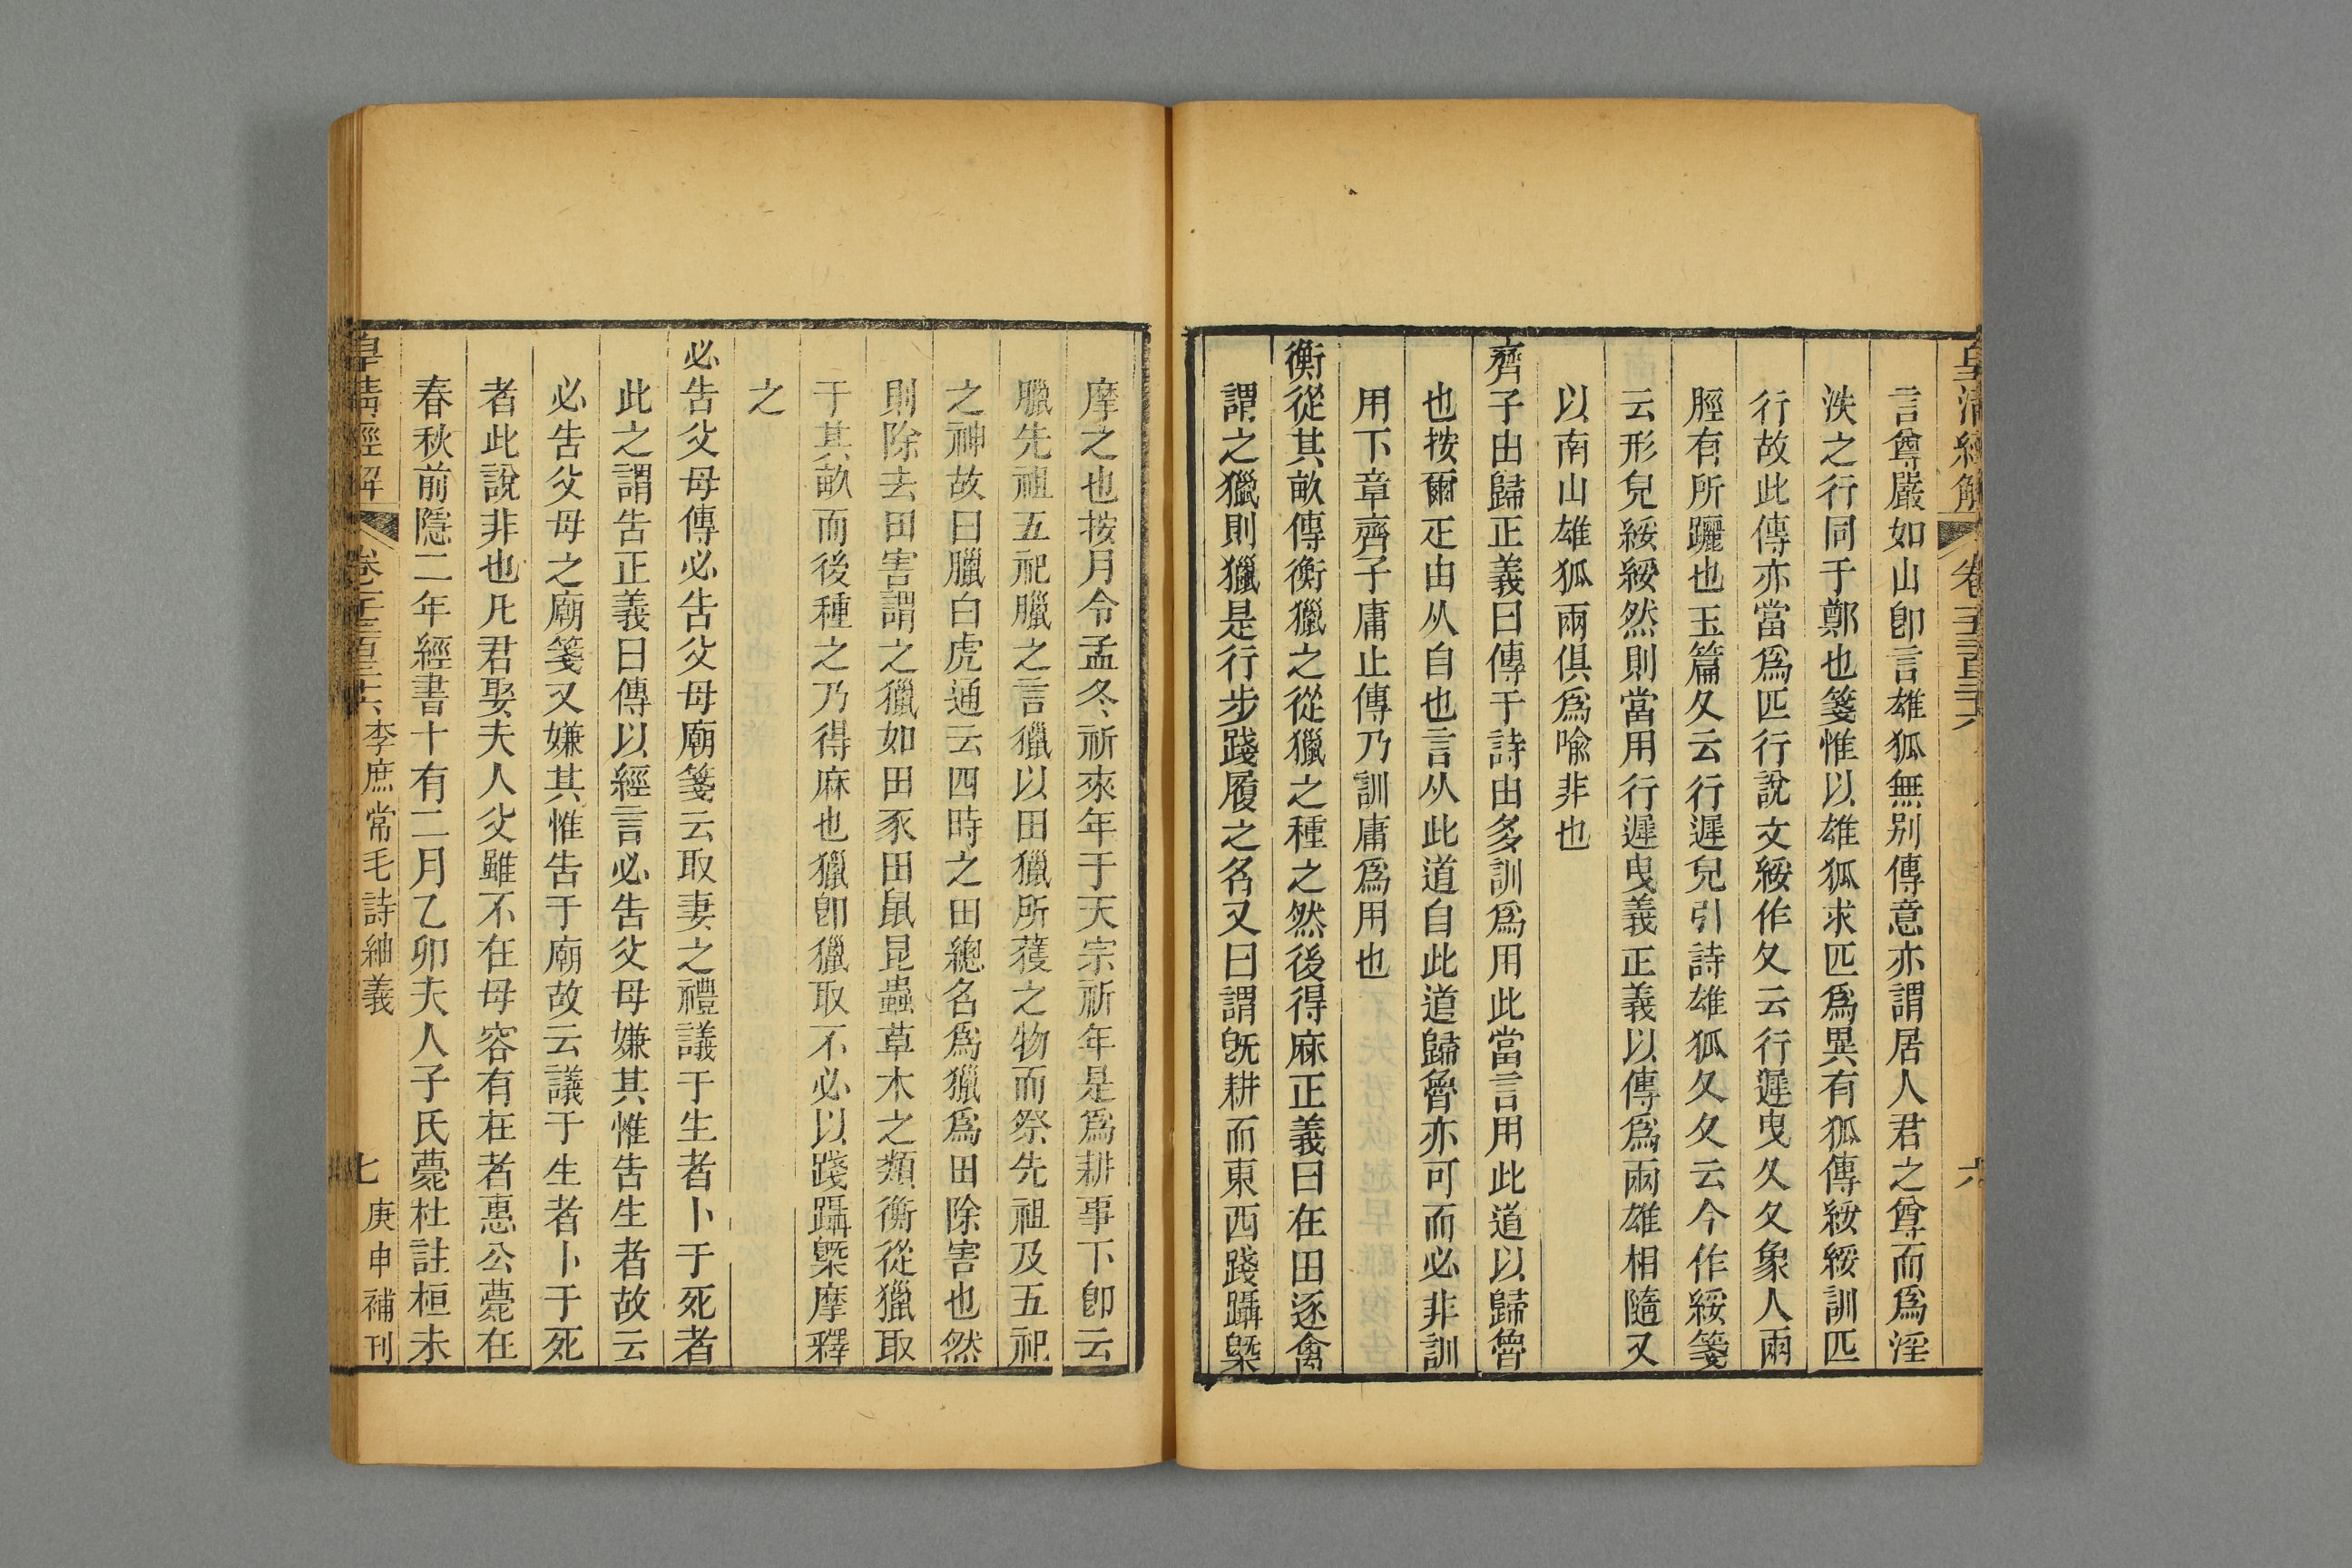 皇清經解
卷一千三百三十六
六
言尊嚴如山卽言雄狐無别傳意亦謂居人君之尊而爲淫
泆之行同于鄭也箋惟以雄狐求匹爲異有狐傳綏綏訓匹
行故此傳亦當爲匹行說文綏作夊云行遲曳夊夊象人兩
脛有所躧也玉篇夊云行遲皃引詩雄狐夊夊云今作綏箋
云形皃綏綏然則當用行遲曳義正義以傳爲兩雄相隨又
以南山雄狐兩俱爲喩非也
齊子由歸正義曰傳于詩由多訓爲用此當言用此道以歸魯
也按爾疋由从自也言从此道自此道歸魯亦可而必非訓
用下章齊子庸止傳乃訓庸爲用也
衡從其畝傳衡獵之從獵之種之然後得麻正義曰在田逐禽
謂之獵則獵是行步踐履之名又曰謂旣耕而東西踐躡槩
摩之也按月令孟冬祈來年于天宗祈年是爲耕事下卽云
臘先祖五祀臘之言獵以田獵所獲之物而祭先祖及五祀
之神故曰臘白虎通云四時之田總名爲獵爲田除害也然
則除去田害謂之獵如田豕田鼠昆蟲草木之類衡從獵取
于其畝而後種之乃得麻也獵卽獵取不必以踐躡槩摩釋
之
必告父母傳必告父母廟箋云取妻之禮議于生者卜于死者
此之謂告正義曰傳以經言必告父母嫌其惟告生者故云
必告父母之廟箋又嫌其惟告于廟故云議于生者卜于死
者此說非也凡君娶夫人父雖不在母容有在者惠公薨在
春秋前隱二年經書十有二月乙卯夫人子氏薨杜註桓未
皇清經解
卷一千三百三十六
李庶常毛詩紬義
七
庚申補刊